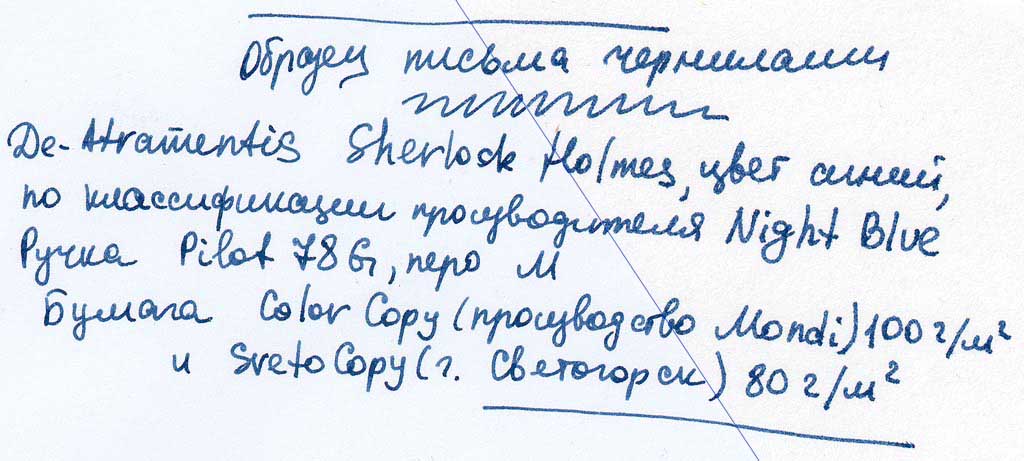 Образец письма чернилами
De-Atramentis Sherlock Holmes, цвет синий,
по классификации производителя Night Blue
Ручка Pilot 78G, перо М
Бумага Color Copy (производство Mondi) 100 г/м²
и SvetoCopy (г. Светогорск) 80 г/м²